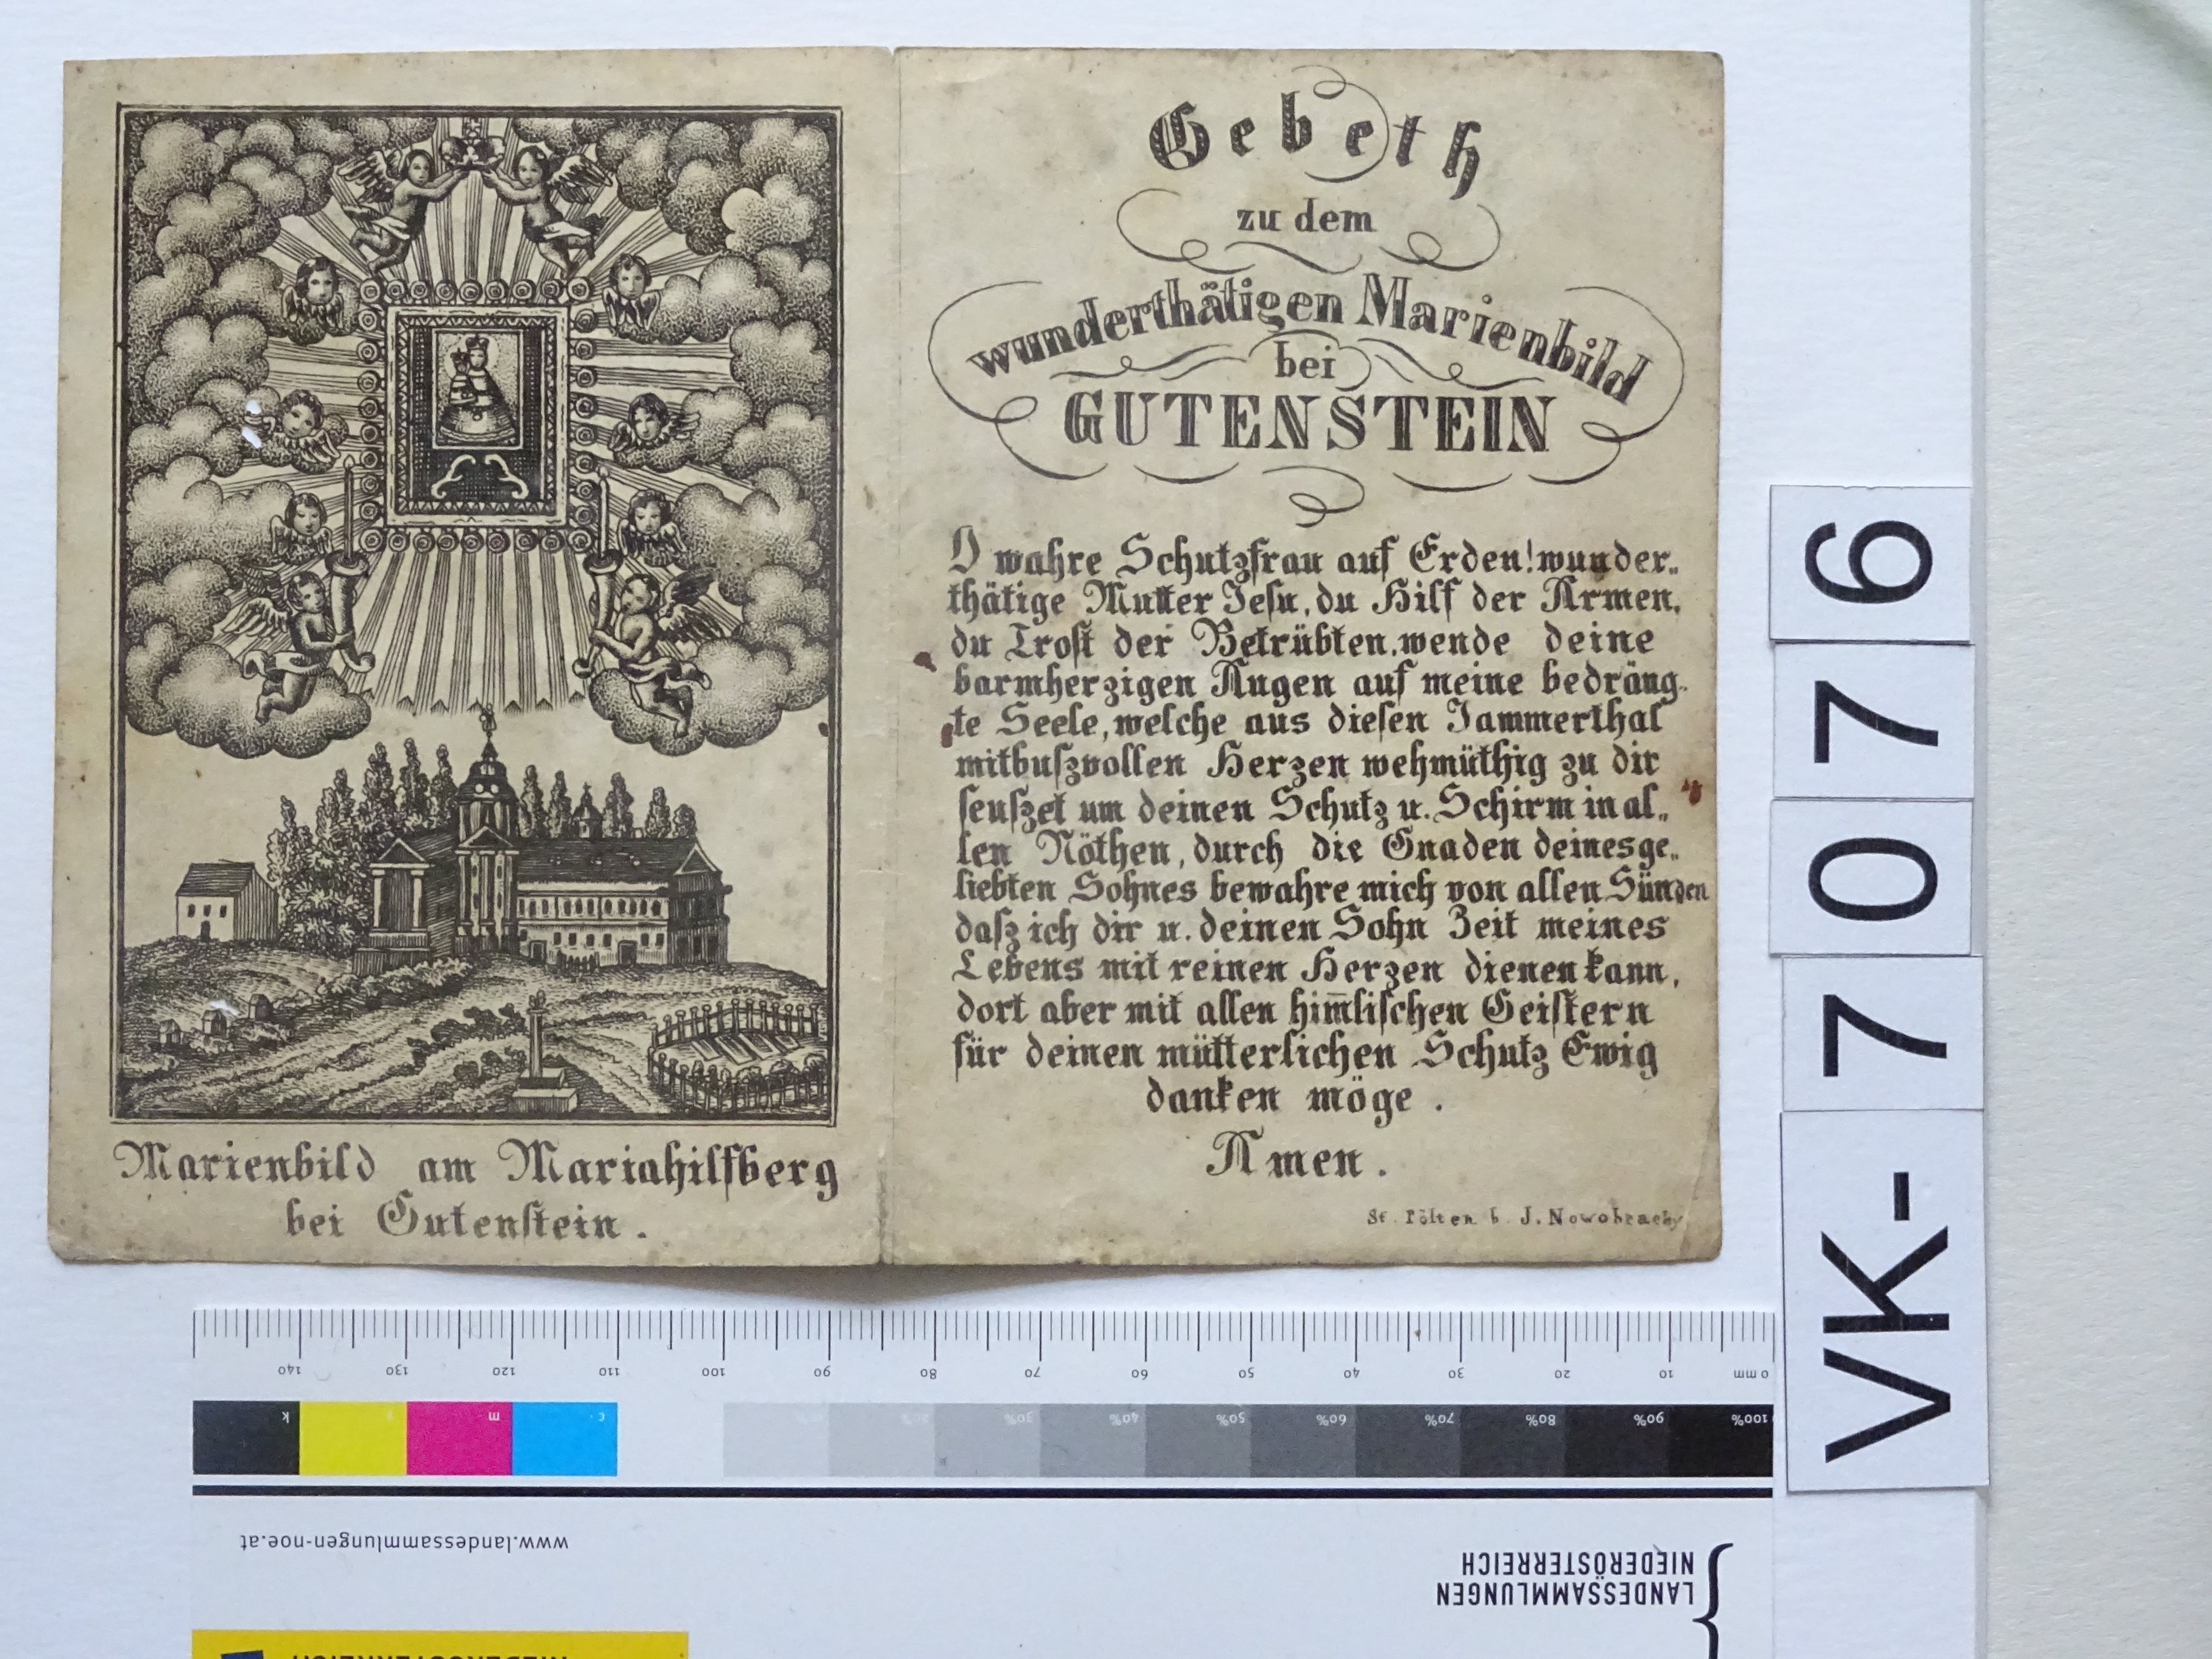 Marienbild am Mariahilfberg
bei Gutenstein.
Gebeth
zu dem
wunderthätigen Marienbild
bei
GUTENSTEIN
O wahre Schutzfrau auf Erden! wunder„
thätige Mutter Jesu, du Hilf der Armen,
du Trost der Betrübten, wende deine
barmherzigen Augen auf meine bedräng„
te Seele, welche aus diesen Jammerthal
mitbuſzvollen Herzen wehmüthig zu dir
seufzet um deinen Schutz u. Schirm in al„
len Nöthen, durch die Gnaden deines ge„
liebten Sohnes bewahre mich von allen Sünden
daſz ich dir u. deinen Sohn Zeit meines
Lebens mit reinen Herzen dienen kann,
dort aber mit allen him̄lischen Geistern
für deinen mütterlichen Schutz Ewig
danken möge.
Amen.
St. Pölten b. J. Nowohracky
VK-77076
140 130 120 110 100 90 80 70 60 50 40 30 20 10 0 mm
k y m c 10% 20% 30% 40% 50% 60% 70% 80% 90% 100%
www.landessammlungen-noe.at
LANDESSAMMLUNGEN
NIEDERÖSTERREICH
NIEDERÖSTERREICH